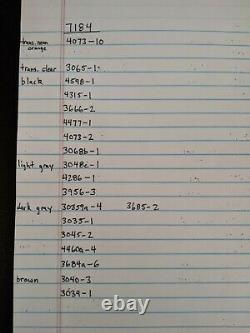 7184
trans. neon orange 4073-10
trans. clear 3065-1
black 4598-1
4315-1
3666-2
4477-1
4073-2
3068b-1
light gray 3048c-1
4286-1
3956-3
dark gray 30359a-4 3685-2
3035-1
3045-2
4460a-4
3684a-6
brown 3040-3
3039-1